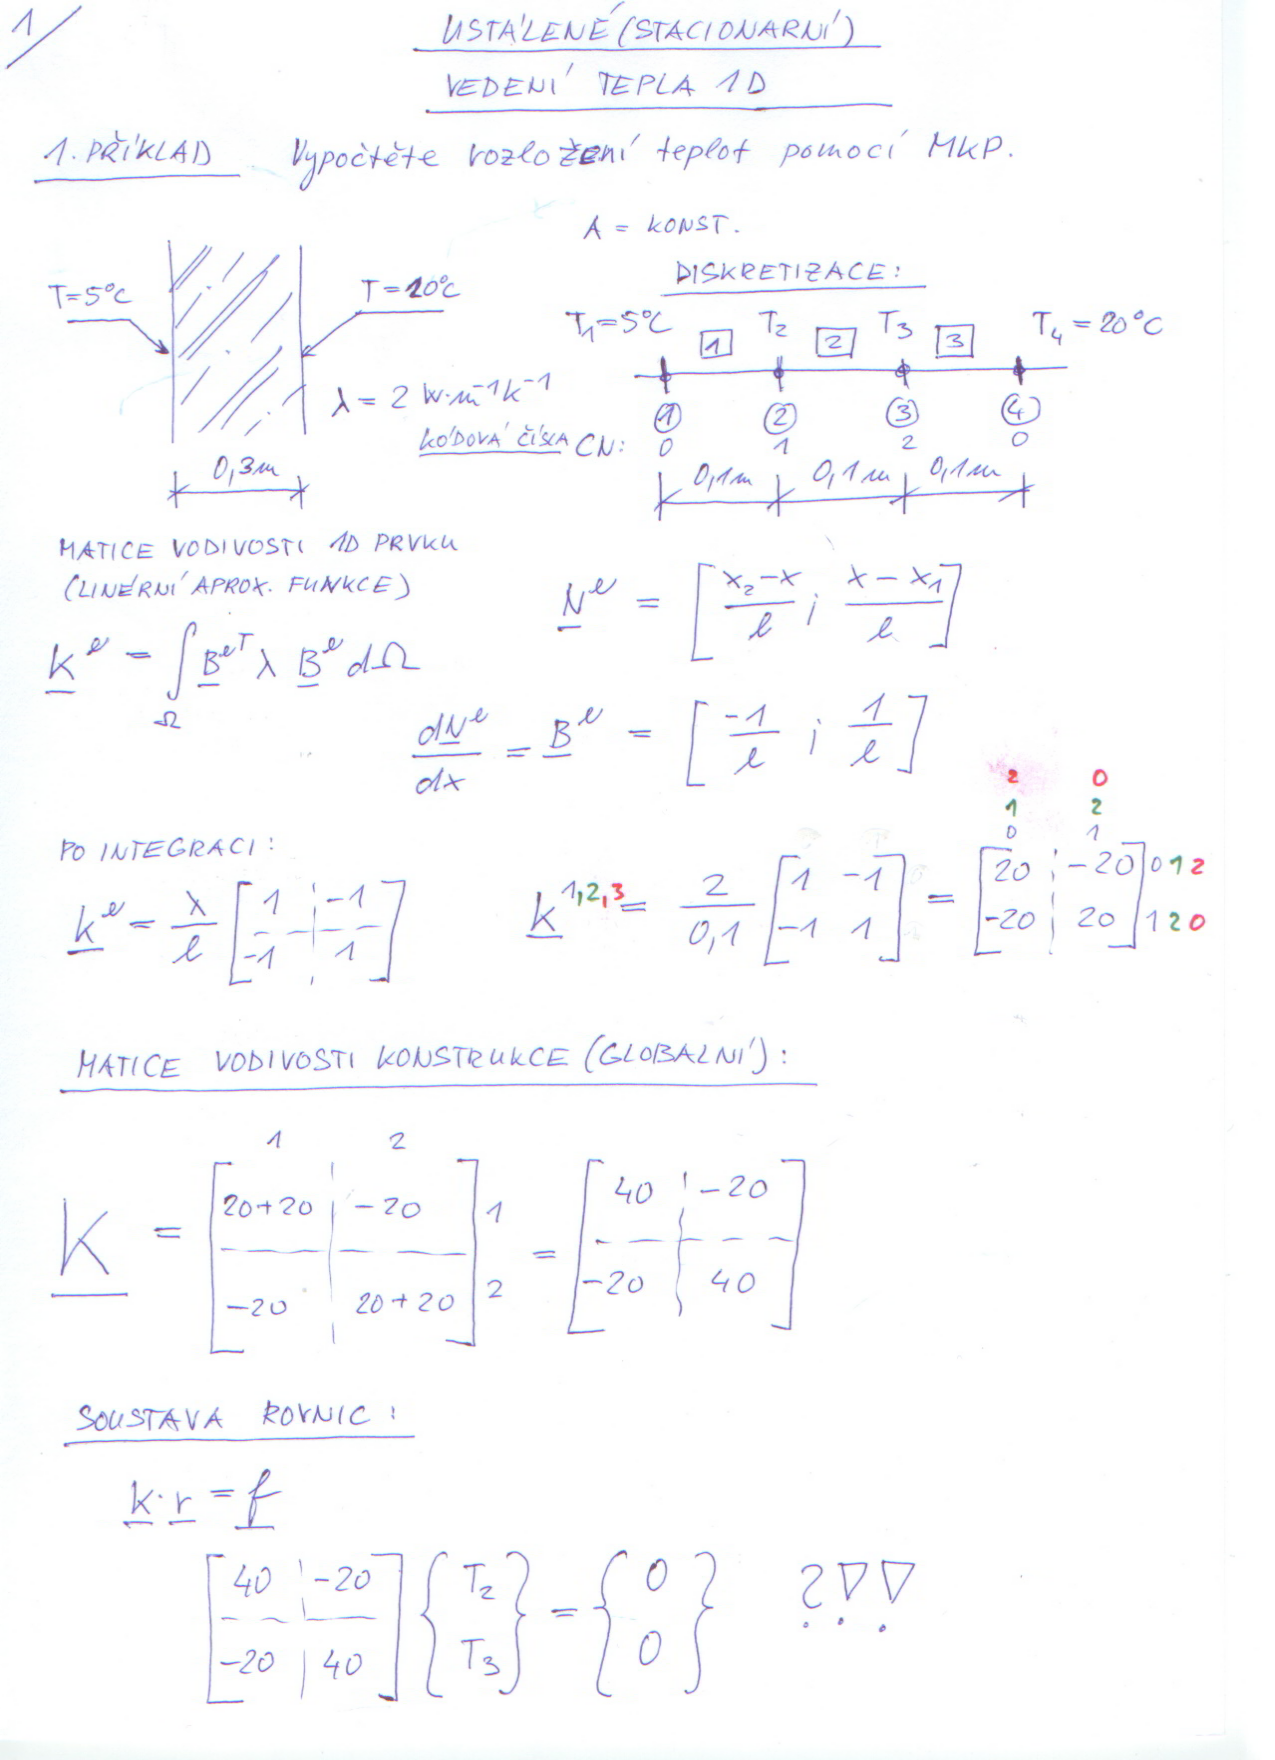 1/
USTÁLENÉ (STACIONARNÍ)
VEDENÍ TEPLA 1D
1. PŘÍKLAD Vypočtěte rozložení teplot pomocí MKP.
A = KONST.
DISKRETIZACE:
T=5°C T=20°C
T1=5°C 1 T2 2 T3 3 T4=20°C
λ = 2 W·m⁻¹K⁻¹
1 2 3 4
KÓDOVÁ ČÍSLA CN: 0 1 2 0
0,3m 0,1m 0,1m 0,1m
MATICE VODIVOSTI 1D PRVKU
(LINÉRNÍ APROX. FUNKCE)
N^e = [ (x2-x)/l ; (x-x1)/l ]
K^e = ∫Ω B^eT λ B^e dΩ
dN^e/dx = B^e = [ -1/l ; 1/l ]
2 0
1 2
0 1
PO INTEGRACI:
K^e = λ/l [ 1 -1 ; -1 1 ] K^1,2,3 = 2/0,1 [ 1 -1 ; -1 1 ] = [ 20 -20 ; -20 20 ] 0 1 2 ; 1 2 0
MATICE VODIVOSTI KONSTRUKCE (GLOBALNÍ):
1 2
K = [ 20+20 -20 ; -20 20+20 ] 1 2 = [ 40 -20 ; -20 40 ]
SOUSTAVA ROVNIC:
K·r = f
[ 40 -20 ; -20 40 ] { T2 ; T3 } = { 0 ; 0 } ?!!